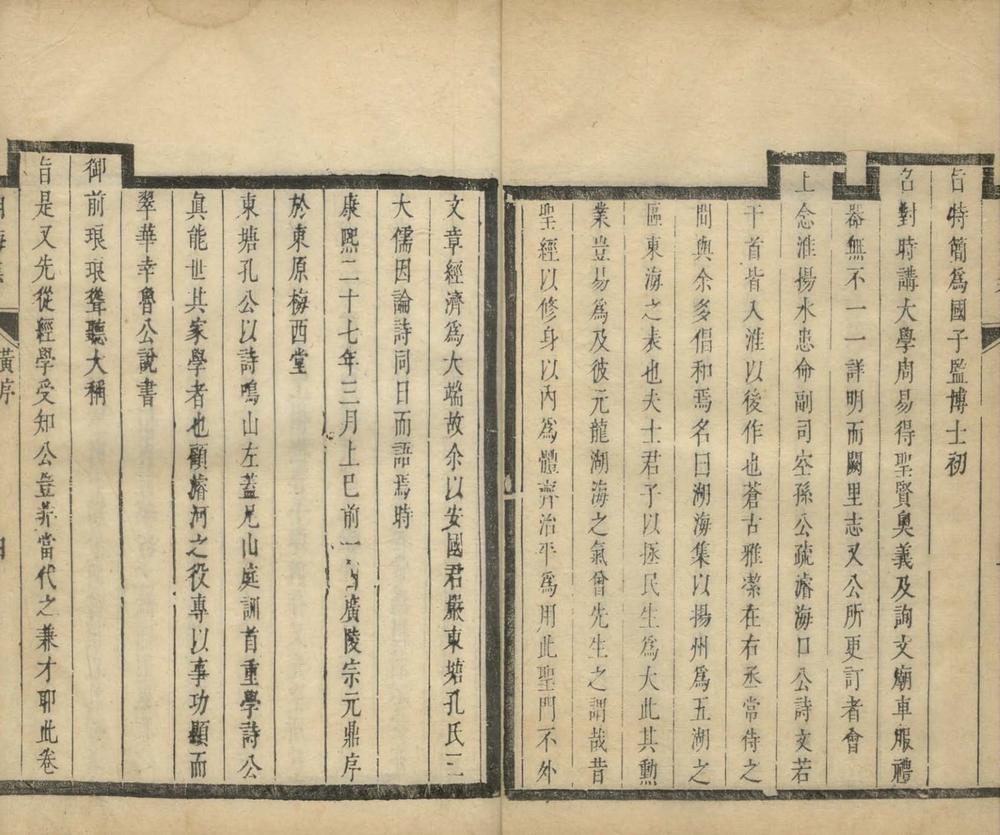 旨特簡爲國子監博士初
召對時講大學周易得聖賢奧義及詢文廟車服禮
器無不一一詳明而闕里志又公所更訂者會
上念淮揚水患命副司空孫公疏濬海口公詩文若
干首皆入淮以後作也蒼古雅潔在右丞常侍之
間與余多倡和焉名曰湖海集以揚州爲五湖之
區東海之表也夫士君子以拯民生爲大此其勳
業豈易爲及彼元龍湖海之氣曾先生之謂哉昔
聖經以修身以內爲體齊治平爲用此聖門不外
文章經濟爲大端故余以安國君嚴東塘孔氏三
大儒因論詩同日而語焉時
康熙二十七年三月上巳前一日廣陵宗元鼎序
於東原梅西堂
東塘孔公以詩鳴山左蓋尼山庭訓首重學詩公
真能世其家學者也顧濬河之役專以事功顯而
翠華幸魯公說書
御前琅琅聳聽大稱
旨是又先從經學受知公豈非當代之兼才耶此卷
湖海集
黃序